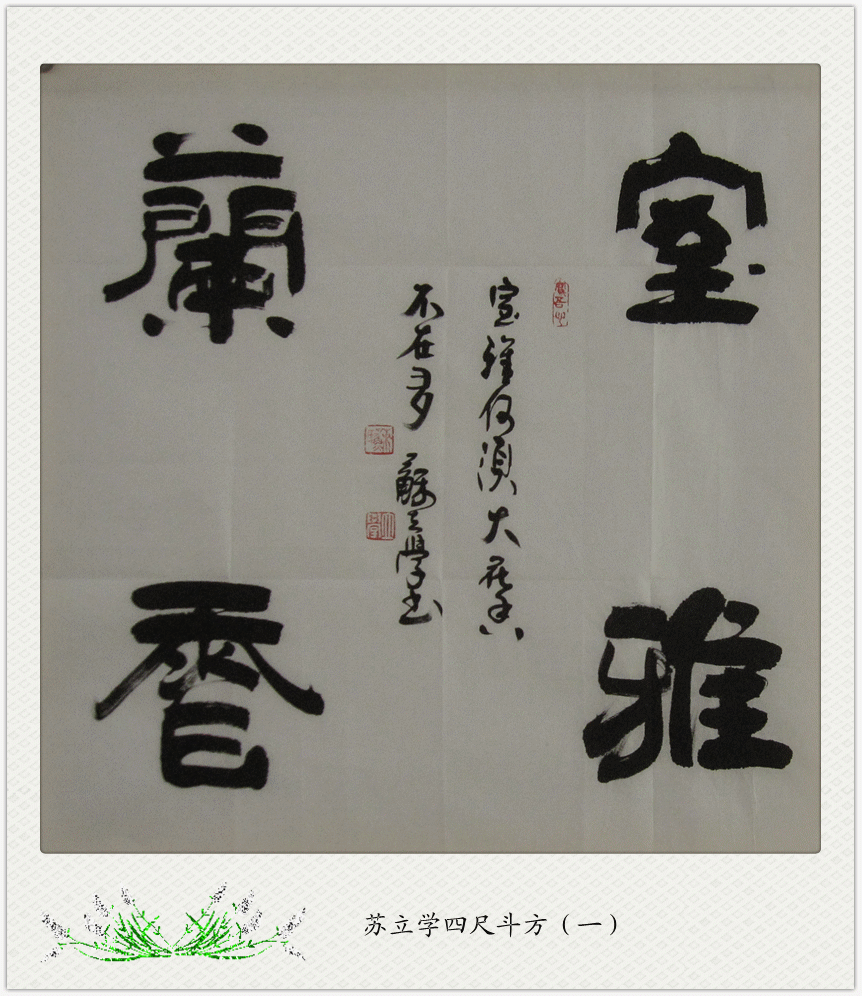 室雅
蘭香
室雅何須大花香
不在多 蘇立學书
苏立学四尺斗方（一）